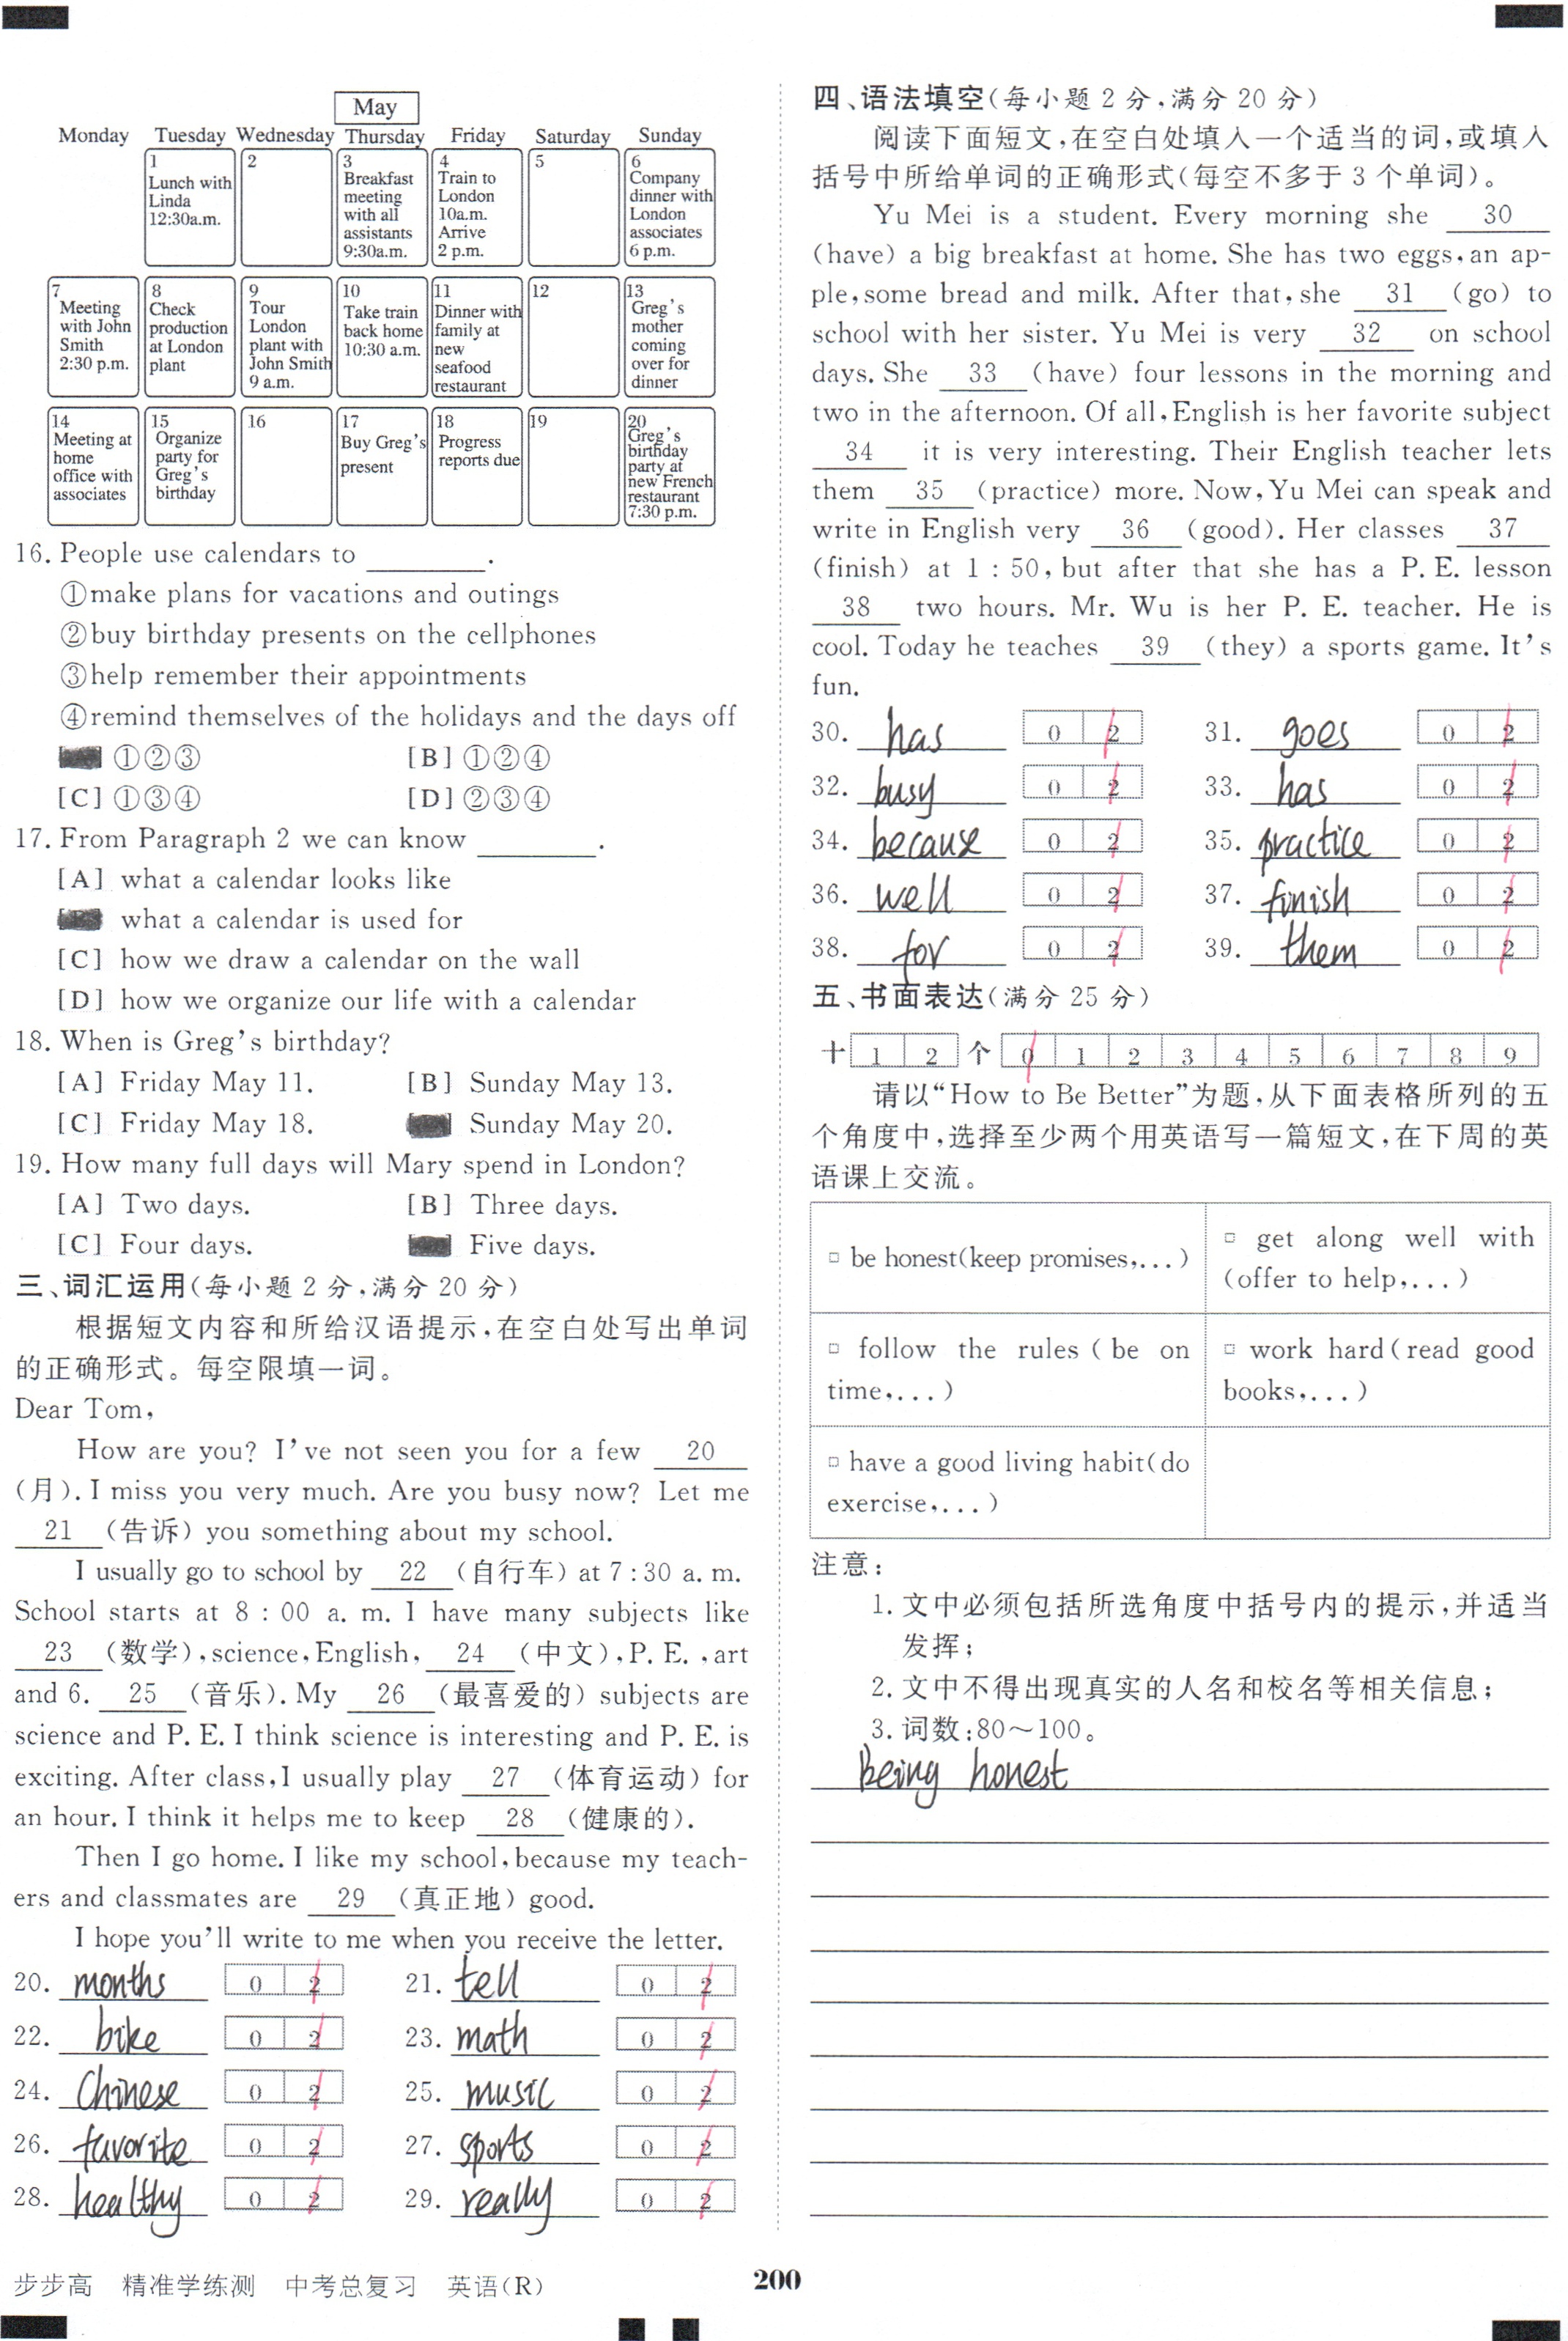 May
Monday Tuesday Wednesday Thursday Friday Saturday Sunday
1
Lunch with
Linda
12:30a.m.
2
3
Breakfast
meeting
with all
assistants
9:30a.m.
4
Train to
London
10a.m.
Arrive
2 p.m.
5
6
Company
dinner with
London
associates
6 p.m.
7
Meeting
with John
Smith
2:30 p.m.
8
Check
production
at London
plant
9
Tour
London
plant with
John Smith
9 a.m.
10
Take train
back home
10:30 a.m.
11
Dinner with
family at
new
seafood
restaurant
12
13
Greg's
mother
coming
over for
dinner
14
Meeting at
home
office with
associates
15
Organize
party for
Greg's
birthday
16
17
Buy Greg's
present
18
Progress
reports due
19
20
Greg's
birthday
party at
new French
restaurant
7:30 p.m.
16. People use calendars to ________.
①make plans for vacations and outings
②buy birthday presents on the cellphones
③help remember their appointments
④remind themselves of the holidays and the days off
①②③ [B] ①②④
[C] ①③④ [D] ②③④
17. From Paragraph 2 we can know ________.
[A] what a calendar looks like
what a calendar is used for
[C] how we draw a calendar on the wall
[D] how we organize our life with a calendar
18. When is Greg's birthday?
[A] Friday May 11. [B] Sunday May 13.
[C] Friday May 18. Sunday May 20.
19. How many full days will Mary spend in London?
[A] Two days. [B] Three days.
[C] Four days. Five days.
三、词汇运用(每小题 2 分,满分 20 分)
根据短文内容和所给汉语提示,在空白处写出单词
的正确形式。每空限填一词。
Dear Tom,
How are you? I've not seen you for a few 20
(月). I miss you very much. Are you busy now? Let me
21 (告诉) you something about my school.
I usually go to school by 22 (自行车) at 7:30 a. m.
School starts at 8:00 a. m. I have many subjects like
23 (数学), science, English, 24 (中文), P. E. , art
and 6. 25 (音乐). My 26 (最喜爱的) subjects are
science and P. E. I think science is interesting and P. E. is
exciting. After class, I usually play 27 (体育运动) for
an hour. I think it helps me to keep 28 (健康的).
Then I go home. I like my school, because my teach-
ers and classmates are 29 (真正地) good.
I hope you'll write to me when you receive the letter.
20. months 0 2 21. tell 0 2
22. bike 0 2 23. math 0 2
24. Chinese 0 2 25. music 0 2
26. favorite 0 2 27. sports 0 2
28. healthy 0 2 29. really 0 2
四、语法填空(每小题 2 分,满分 20 分)
阅读下面短文,在空白处填入一个适当的词,或填入
括号中所给单词的正确形式(每空不多于 3 个单词)。
Yu Mei is a student. Every morning she 30
(have) a big breakfast at home. She has two eggs, an ap-
ple, some bread and milk. After that, she 31 (go) to
school with her sister. Yu Mei is very 32 on school
days. She 33 (have) four lessons in the morning and
two in the afternoon. Of all, English is her favorite subject
34 it is very interesting. Their English teacher lets
them 35 (practice) more. Now, Yu Mei can speak and
write in English very 36 (good). Her classes 37
(finish) at 1:50, but after that she has a P. E. lesson
38 two hours. Mr. Wu is her P. E. teacher. He is
cool. Today he teaches 39 (they) a sports game. It's
fun.
30. has 0 2 31. goes 0 2
32. busy 0 2 33. has 0 2
34. because 0 2 35. practice 0 2
36. well 0 2 37. finish 0 2
38. for 0 2 39. them 0 2
五、书面表达(满分 25 分)
十 1 2 个 0 1 2 3 4 5 6 7 8 9
请以“How to Be Better”为题,从下面表格所列的五
个角度中,选择至少两个用英语写一篇短文,在下周的英
语课上交流。
□ be honest(keep promises,...)
□ get along well with
(offer to help,...)
□ follow the rules (be on
time,...)
□ work hard(read good
books,...)
□ have a good living habit(do
exercise,...)
注意:
1. 文中必须包括所选角度中括号内的提示,并适当
发挥;
2. 文中不得出现真实的人名和校名等相关信息;
3. 词数:80~100。
Being honest
步步高 精准学练测 中考总复习 英语(R)
200